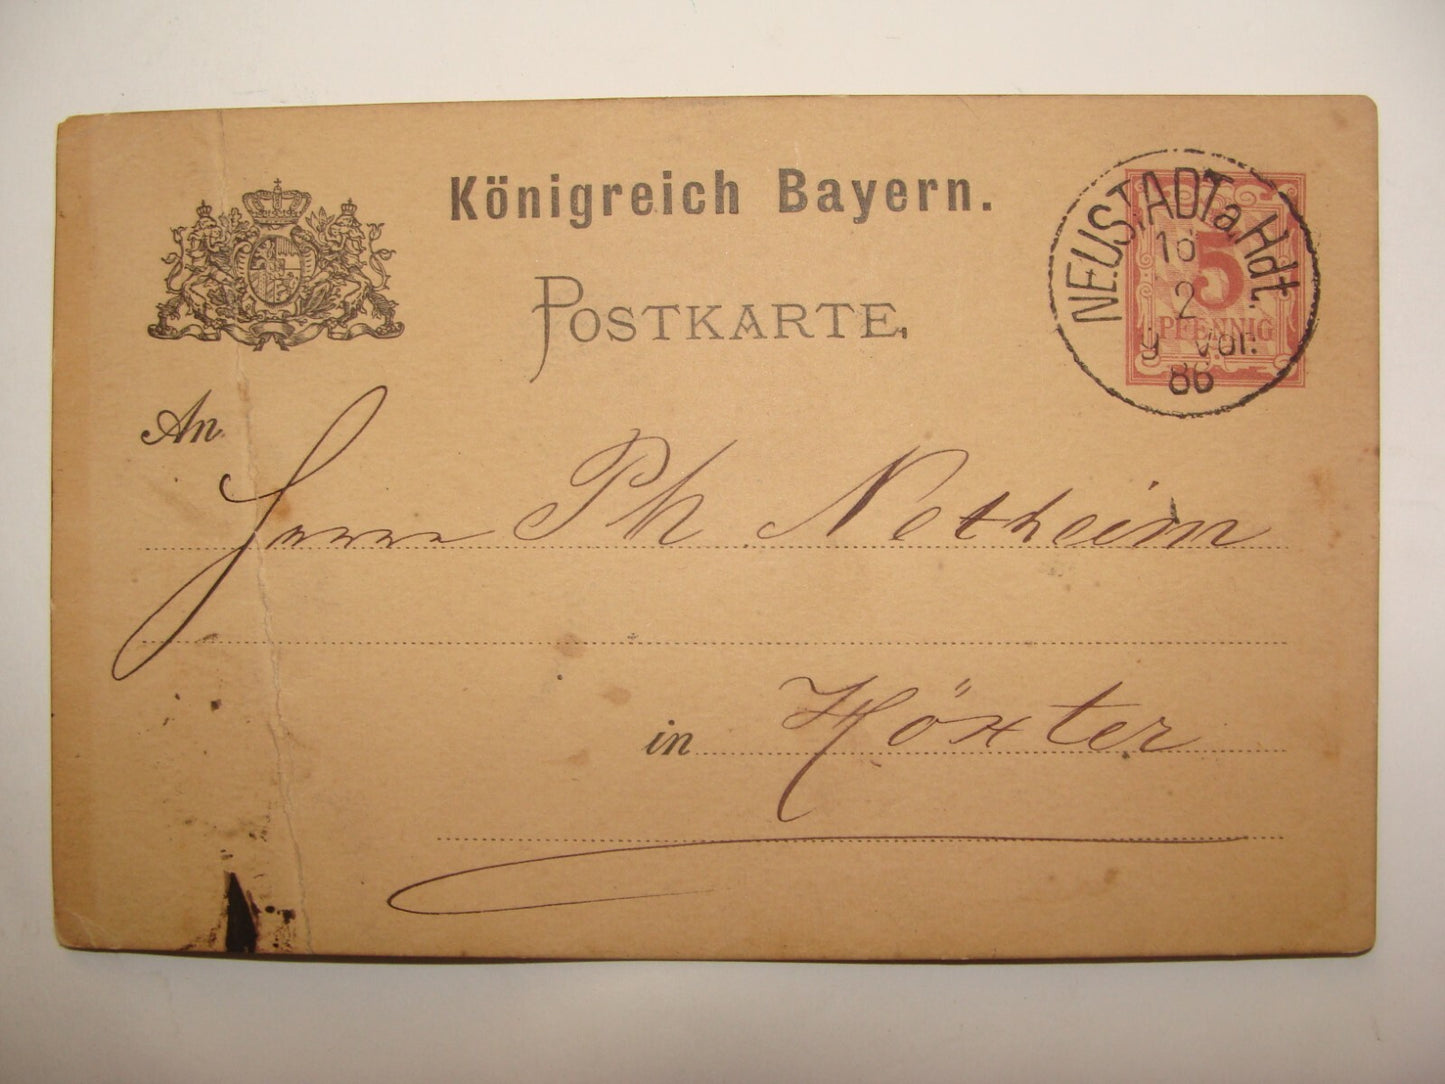 Königreich Bayern.
POSTKARTE.
NEUSTADT a. Hdt.
16
2
9 Vor.
86
5
PFENNIG
An
Herrn Ph Netheim
in Höxter